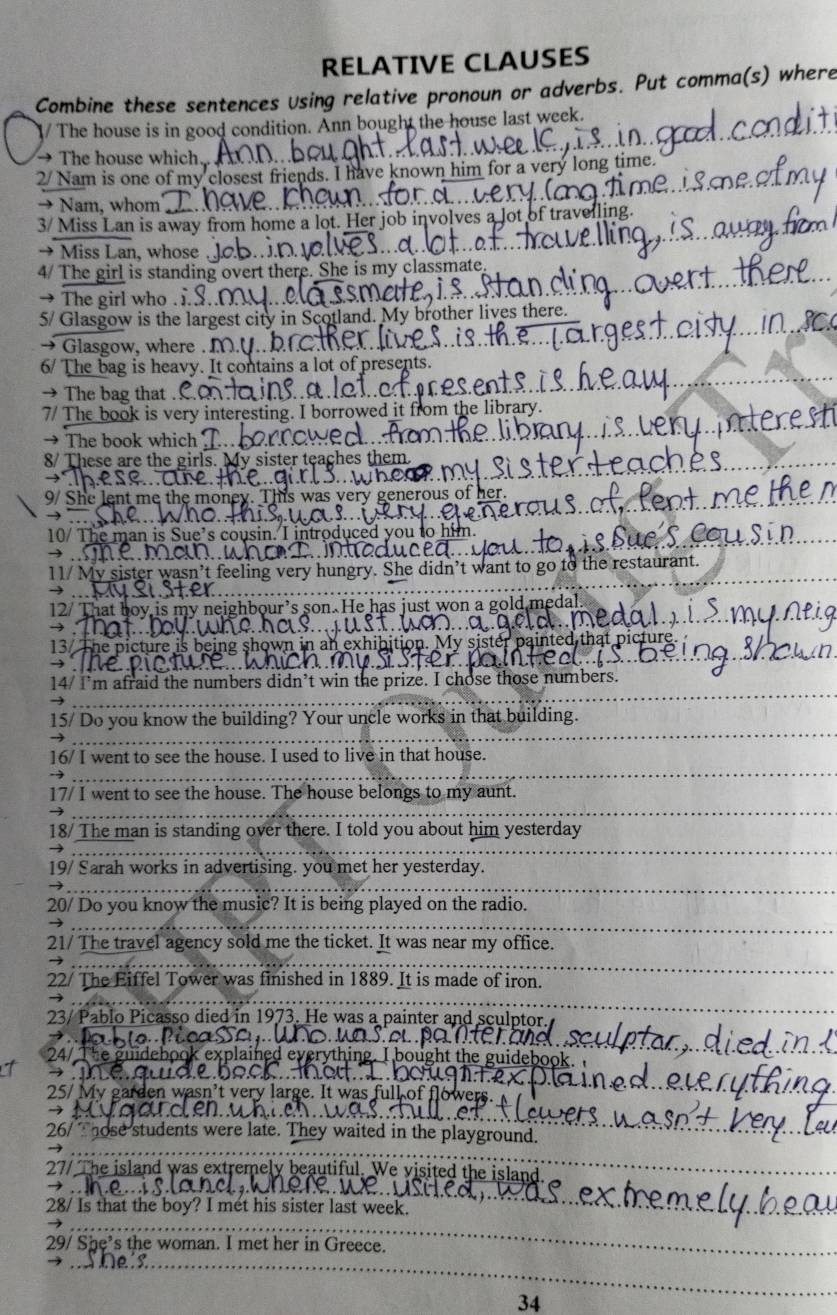 RELATIVE CLAUSES
Combine these sentences using relative pronoun or adverbs. Put comma(s) where
1/ The house is in good condition. Ann bought the house last week.
→ The house which, Ann bought last week, is in good conditi
2/ Nam is one of my closest friends. I have known him for a very long time.
→ Nam, whom I have known for a very long time is one of my
3/ Miss Lan is away from home a lot. Her job involves a lot of travelling.
→ Miss Lan, whose job involves a lot of travelling, is away from
4/ The girl is standing overt there. She is my classmate.
→ The girl who is my classmate, is standing overt there
5/ Glasgow is the largest city in Scotland. My brother lives there.
→ Glasgow, where my brother lives is the largest city in sco
6/ The bag is heavy. It contains a lot of presents.
→ The bag that contains a lot of presents is heavy
7/ The book is very interesting. I borrowed it from the library.
→ The book which I borrowed from the library is very interesti
8/ These are the girls. My sister teaches them.
→ These are the girls my sister teaches
9/ She lent me the money. This was very generous of her.
→ She who this was very generous of, lent me the m
10/ The man is Sue's cousin. I introduced you to him.
→ The man whom I introduced you to, is Sue's cousin
11/ My sister wasn't feeling very hungry. She didn't want to go to the restaurant.
→ My sister
12/ That boy is my neighbour's son. He has just won a gold medal.
→ That boy who has just won a gold medal, is my neig
13/ The picture is being shown in an exhibition. My sister painted that picture.
→ The picture which my sister painted is being shown
14/ I'm afraid the numbers didn't win the prize. I chose those numbers.
→
15/ Do you know the building? Your uncle works in that building.
→
16/ I went to see the house. I used to live in that house.
→
17/ I went to see the house. The house belongs to my aunt.
→
18/ The man is standing over there. I told you about him yesterday
→
19/ Sarah works in advertising. you met her yesterday.
→
20/ Do you know the music? It is being played on the radio.
→
21/ The travel agency sold me the ticket. It was near my office.
→
22/ The Eiffel Tower was finished in 1889. It is made of iron.
→
23/ Pablo Picasso died in 1973. He was a painter and sculptor.
→ Pablo Picasso, who was a panter and sculptor, died in 1
24/ The guidebook explained everything. I bought the guidebook.
→ The guide book that I bought explained everything
25/ My garden wasn't very large. It was full of flowers.
→ My garden which was full of flowers wasn't very lar
26/ Those students were late. They waited in the playground.
→
27/ The island was extremely beautiful. We visited the island.
→ The island, where we usited, was extremely beau
28/ Is that the boy? I met his sister last week.
→
29/ She's the woman. I met her in Greece.
→ She's
34